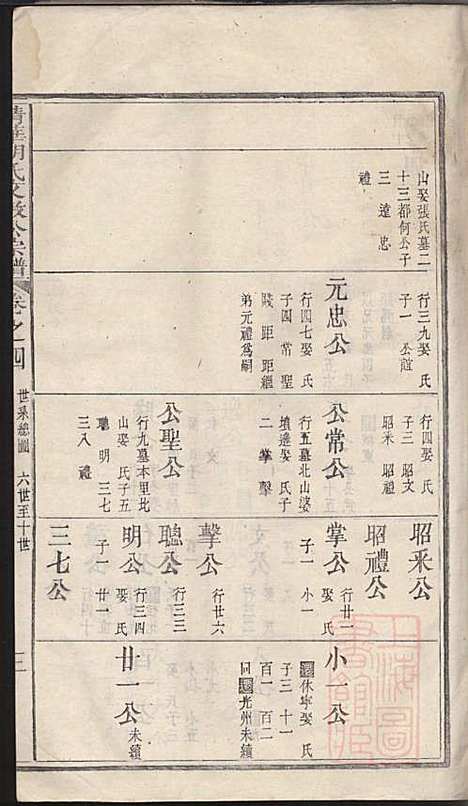 清華胡氏文敏公宗譜
卷之四
世系總圖 六世至十世
三
山娶張氏墓二
十三都何公子
三 逵 忠
禮
行三九娶 氏
子一 公誼
元忠公
行四七娶 氏
子四 常 聖
賤 距 距繼
弟元禮為嗣
行四 娶 氏
子三 昭文
昭采 昭禮
公常公
行五墓北山婆
墳進娶 氏子
二 掌 擊
公聖公
行九墓本里北
山娶 氏子五
聰 明 三七
三八 禮
昭采公
昭禮公
掌公
行廿一
娶 氏
子一 小一
擊公
行廿六
聰公
行三三
明公
行三四
娶 氏
子一 廿一
三七公
小一公
遷休寧娶 氏
子三 十一
百一 百二
同遷光州未續
廿一公
未續
上海圖書館藏